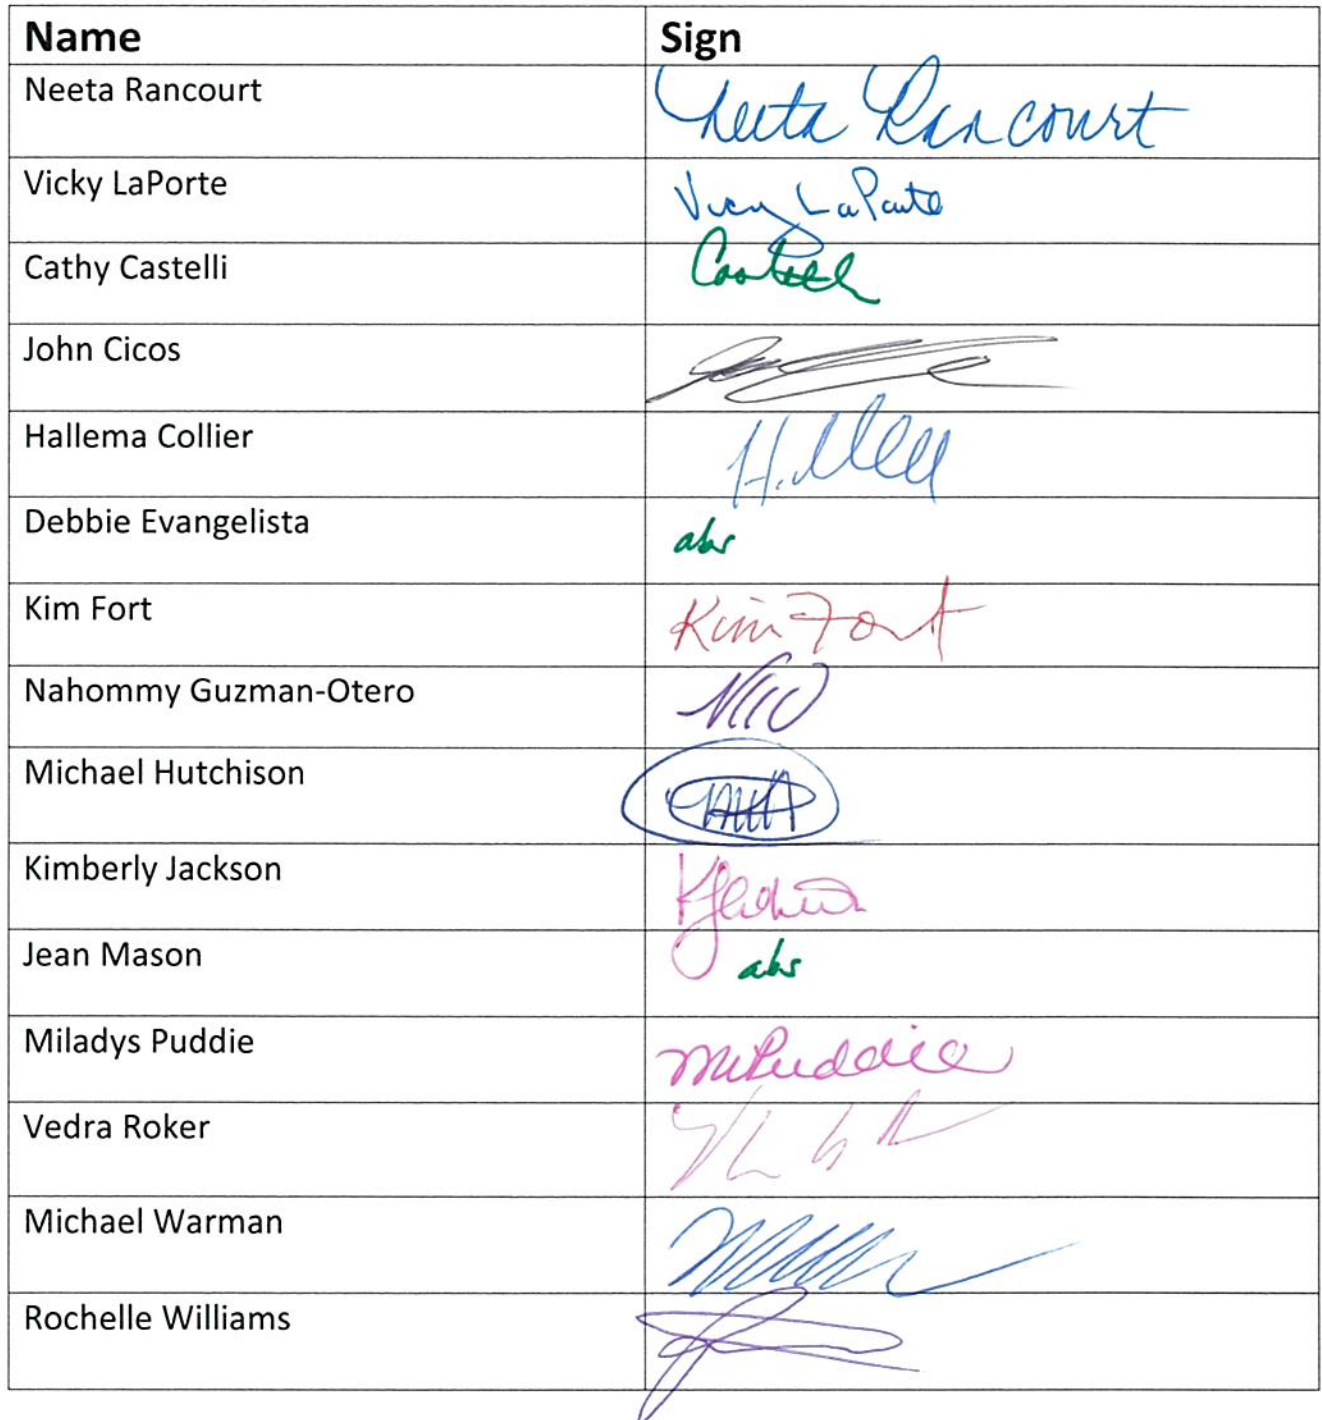 Name Sign
Neeta Rancourt Neeta Rancourt
Vicky LaPorte Vicky LaPorte
Cathy Castelli Castelli
John Cicos
Hallema Collier
Debbie Evangelista abs
Kim Fort Kim Fort
Nahommy Guzman-Otero
Michael Hutchison
Kimberly Jackson
Jean Mason abs
Miladys Puddie MPuddie
Vedra Roker
Michael Warman
Rochelle Williams